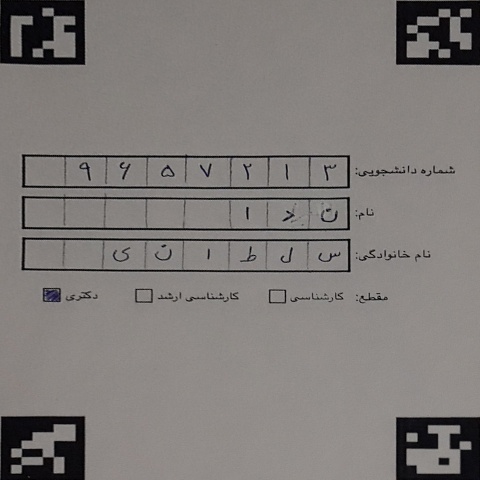 شماره دانشجویی: ۹ ۶ ۵ ۷ ۲ ۱ ۳
نام: ن د ا
نام خانوادگی: س ل ط ا ن ی
مقطع: کارشناسی کارشناسی ارشد دکتری